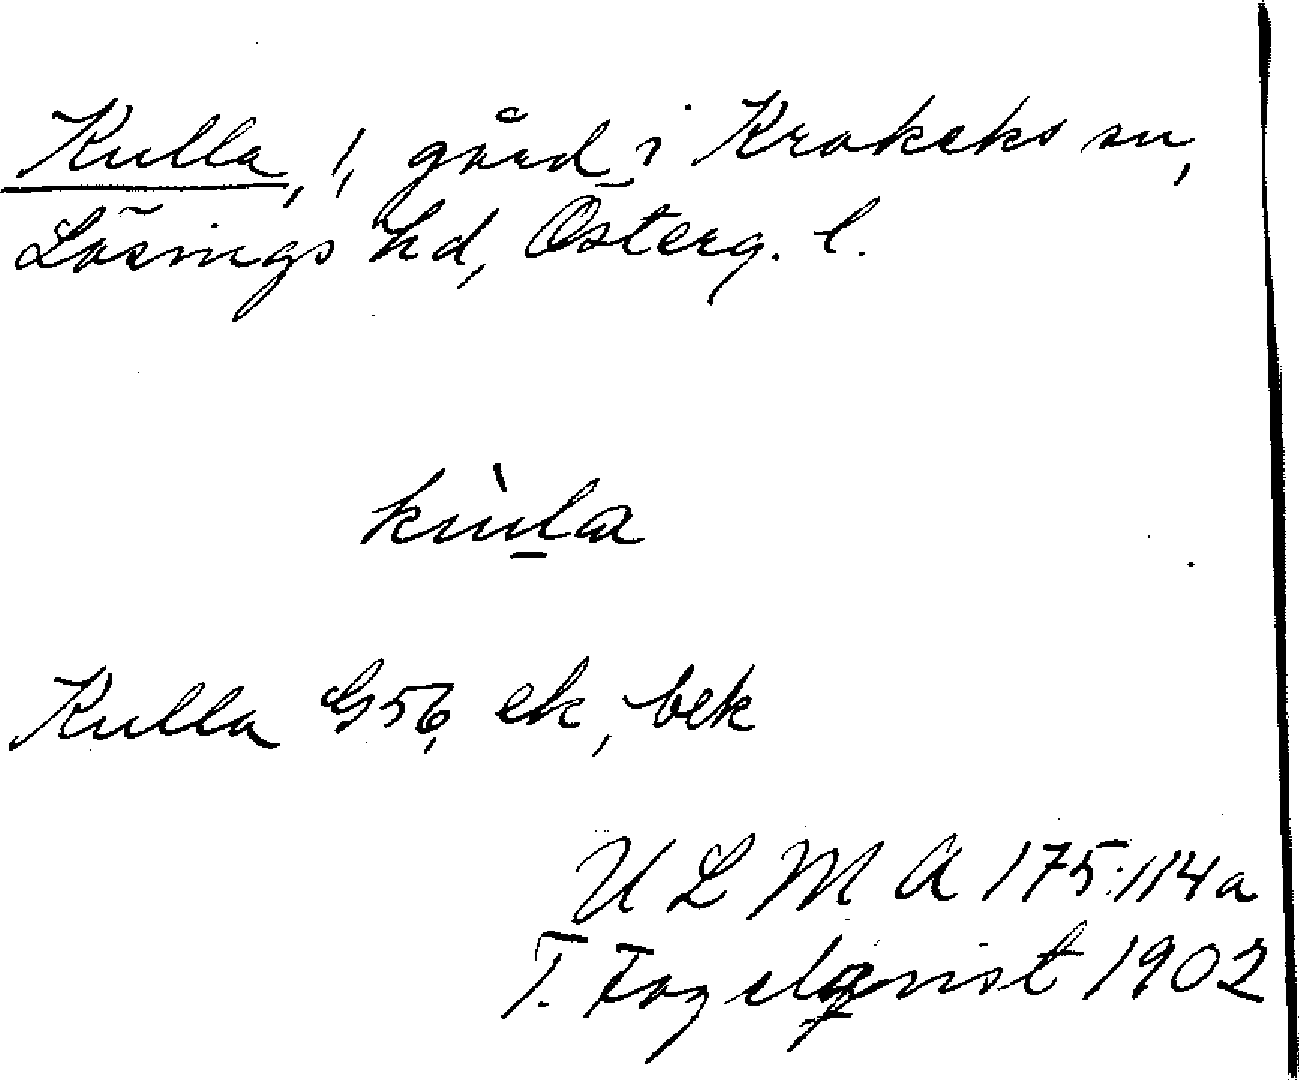 Kulla, 1, gård i Krokeks sn,
Lösings hd, Österg. l.
kùla
Kulla G56, ek, bek
ULMA 175:114a
T. Fogelqvist 1902